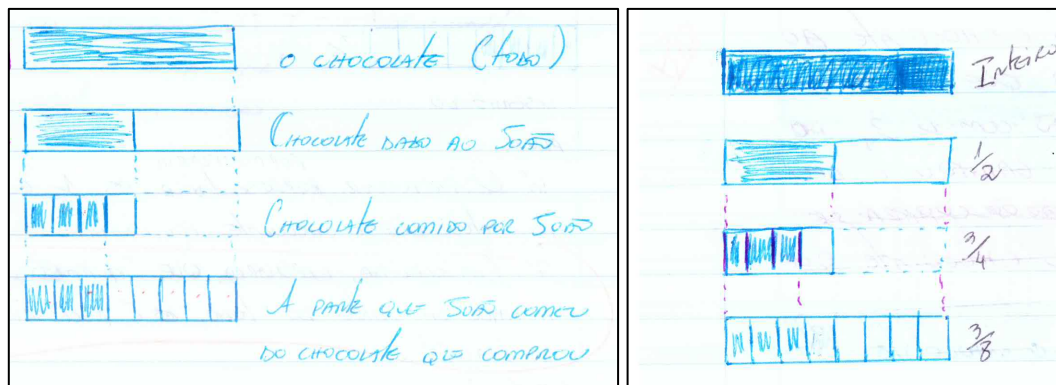 O CHOCOLATE (TODO)
CHOCOLATE DADO AO JOÃO
CHOCOLATE COMIDO POR JOÃO
A PARTE QUE JOÃO COMEU
DO CHOCOLATE QUE COMPROU
INTEIRO
1/2
3/4
3/8